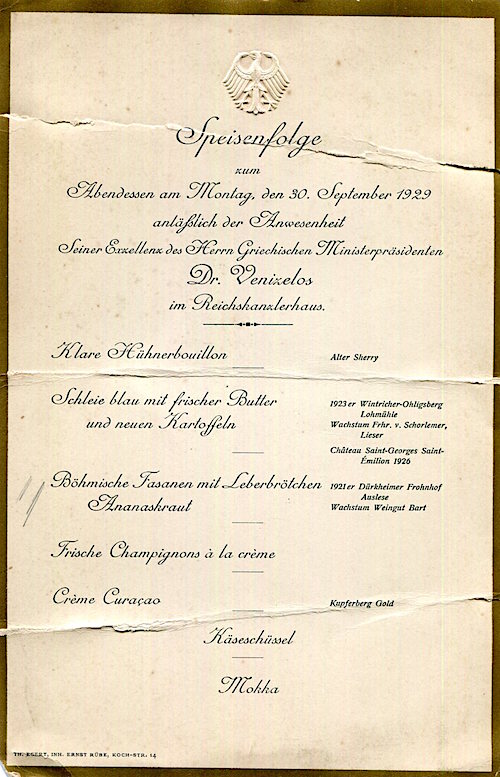 Speisenfolge
zum
Abendessen am Montag, den 30. September 1929
anläßlich der Anwesenheit
Seiner Exzellenz des Herrn Griechischen Ministerpräsidenten
Dr. Venizelos
im Reichskanzlerhaus.
Klare Hühnerbouillon
Alter Sherry
Schleie blau mit frischer Butter
und neuen Kartoffeln
1923er Wintricher-Ohligsberg
Lohmühle
Wachstum Frhr. v. Schorlemer,
Lieser
Château Saint-Georges Saint-
Émilion 1926
Böhmische Fasanen mit Leberbrötchen
Ananaskraut
1921er Dürkheimer Fronhof
Auslese
Wachstum Weingut Bart
Frische Champignons à la crème
Crème Curaçao
Kupferberg Gold
Käseschüssel
Mokka
TH. EGERT, INH. ERNST RÜBE, KOCH-STR. 14